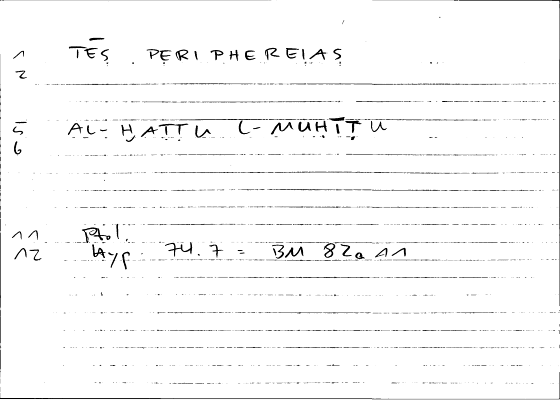 1 TĒS PERIPHEREIAS
2
5 AL-ḪAṬṬU L-MUḤĪṬU
6
11 Ptol.
12 Hyp. 74.7 = BM 82a 11